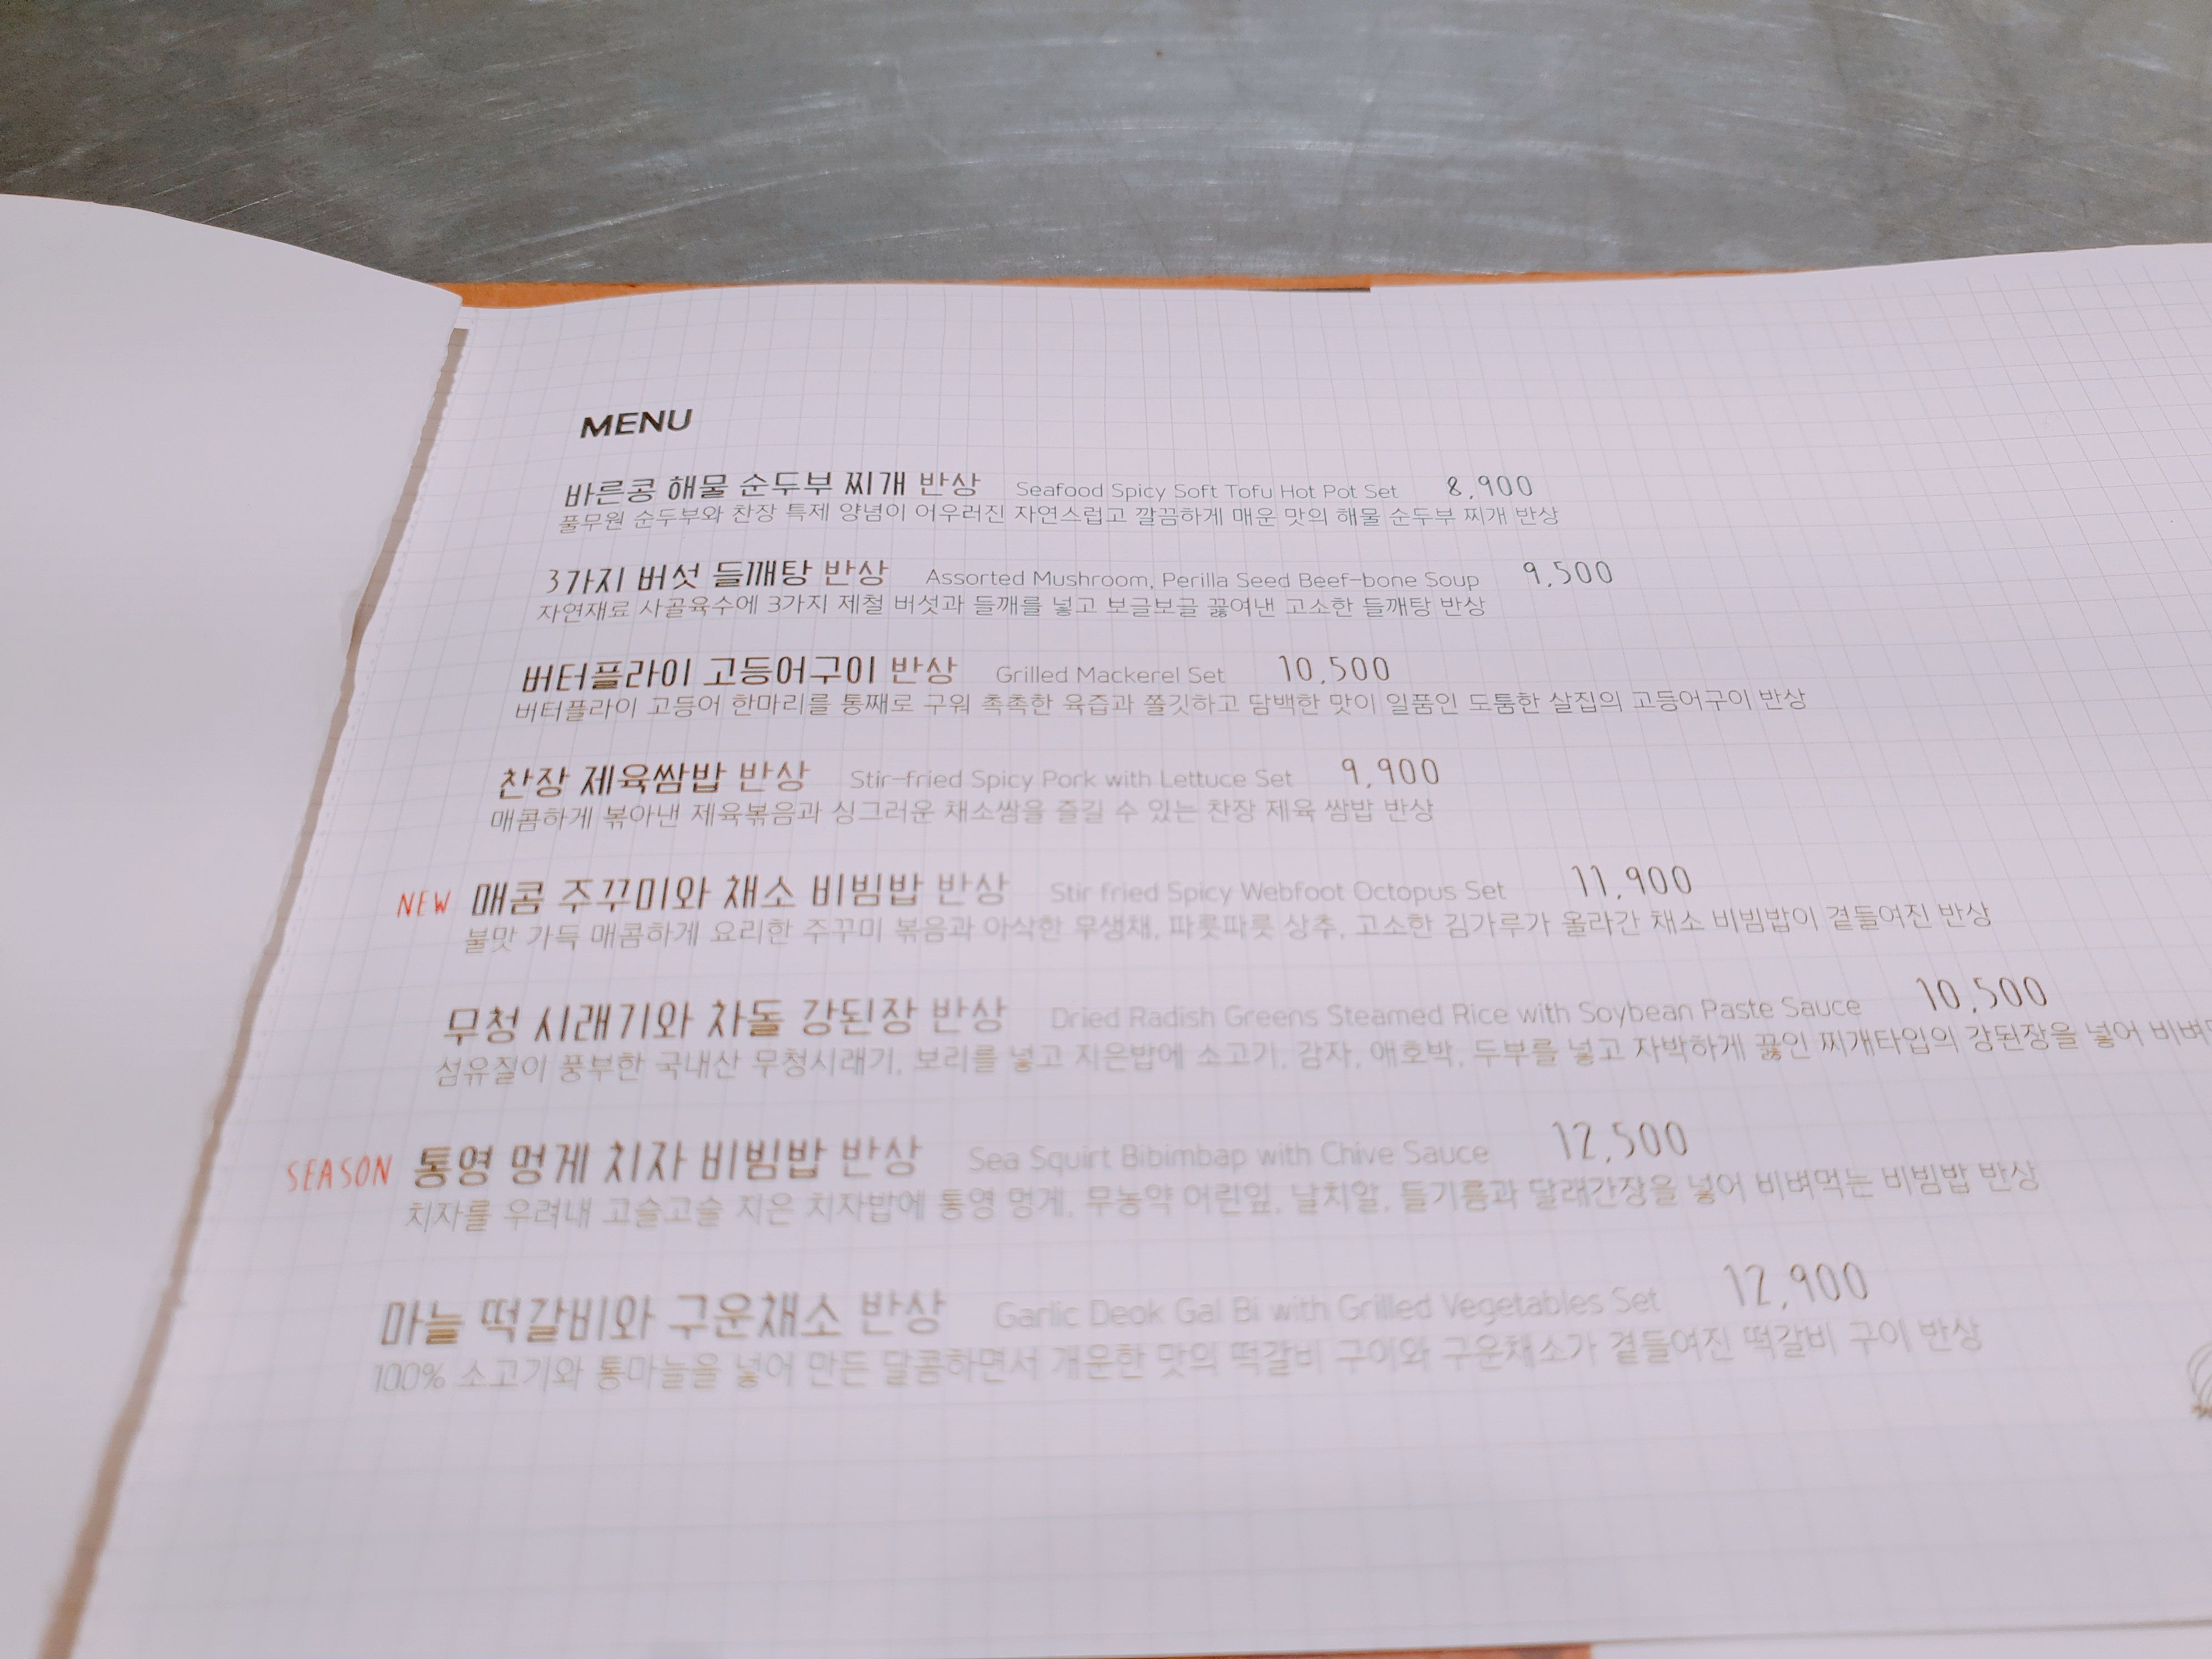 MENU
바른콩 해물 순두부 찌개 반상 Seafood Spicy Soft Tofu Hot Pot Set 8,900
풀무원 순두부와 찬장 특제 양념이 어우러진 자연스럽고 깔끔하게 매운 맛의 해물 순두부 찌개 반상
3가지 버섯 들깨탕 반상 Assorted Mushroom, Perilla Seed Beef-bone Soup 9,500
자연재료 사골육수에 3가지 제철 버섯과 들깨를 넣고 보글보글 끓여낸 고소한 들깨탕 반상
버터플라이 고등어구이 반상 Grilled Mackerel Set 10,500
버터플라이 고등어 한마리를 통째로 구워 촉촉한 육즙과 쫄깃하고 담백한 맛이 일품인 도톰한 살집의 고등어구이 반상
찬장 제육쌈밥 반상 Stir-fried Spicy Pork with Lettuce Set 9,900
매콤하게 볶아낸 제육볶음과 싱그러운 채소쌈을 즐길 수 있는 찬장 제육 쌈밥 반상
NEW 매콤 주꾸미와 채소 비빔밥 반상 Stir fried Spicy Webfoot Octopus Set 11,900
불맛 가득 매콤하게 요리한 주꾸미 볶음과 아삭한 무생채, 파릇파릇 상추, 고소한 김가루가 올라간 채소 비빔밥이 곁들여진 반상
무청 시래기와 차돌 강된장 반상 Dried Radish Greens Steamed Rice with Soybean Paste Sauce 10,500
섬유질이 풍부한 국내산 무청시래기, 보리를 넣고 지은밥에 소고기, 감자, 애호박, 두부를 넣고 자박하게 끓인 찌개타입의 강된장을 넣어
SEASON 통영 멍게 치자 비빔밥 반상 Sea Squirt Bibimbap with Chive Sauce 12,500
치자를 우려내 고슬고슬 지은 치자밥에 통영 멍게, 무농약 어린잎, 날치알, 들기름과 달래간장을 넣어 비벼먹는 비빔밥 반상
마늘 떡갈비와 구운채소 반상 Garlic Deok Gal Bi with Grilled Vegetables Set 12,900
100% 소고기와 통마늘을 넣어 만든 달콤하면서 개운한 맛의 떡갈비 구이와 구운채소가 곁들여진 떡갈비 구이 반상